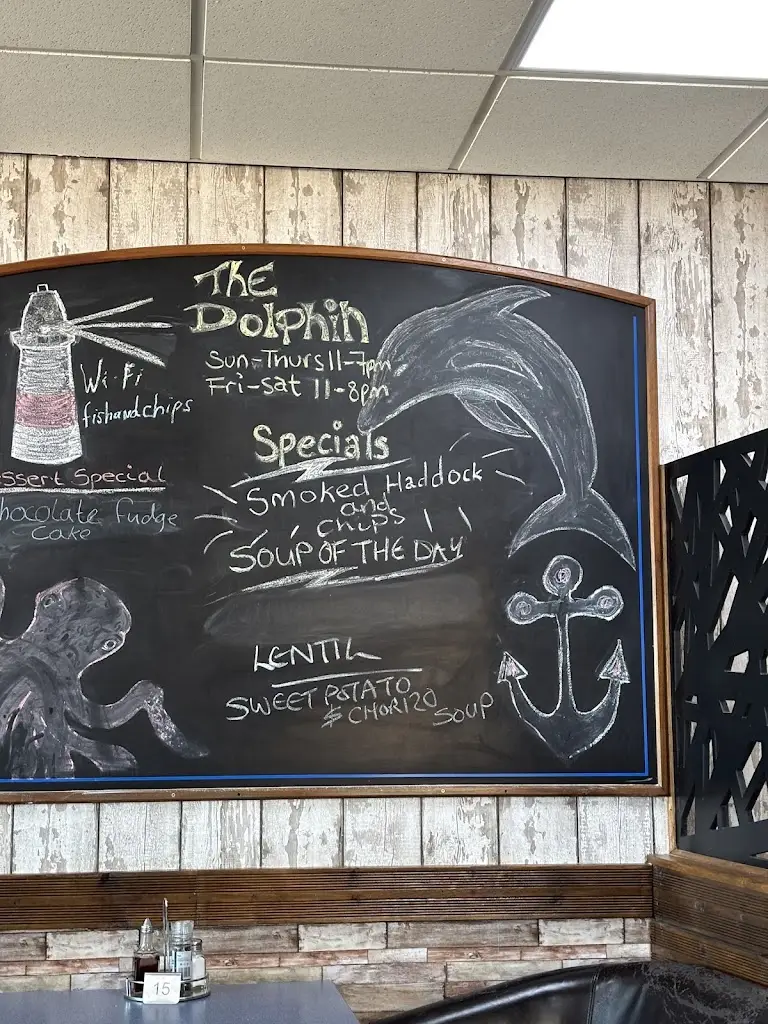 The
Dolphin
Sun-Thurs 11-7pm
Fri-Sat 11-8pm
Wi-Fi
fishandchips
Specials
Smoked Haddock
and
chips
SOUP OF THE DAY
LENTIL
SWEET POTATO
& CHORIZO SOUP
ssert Special
hocolate fudge
Cake
15